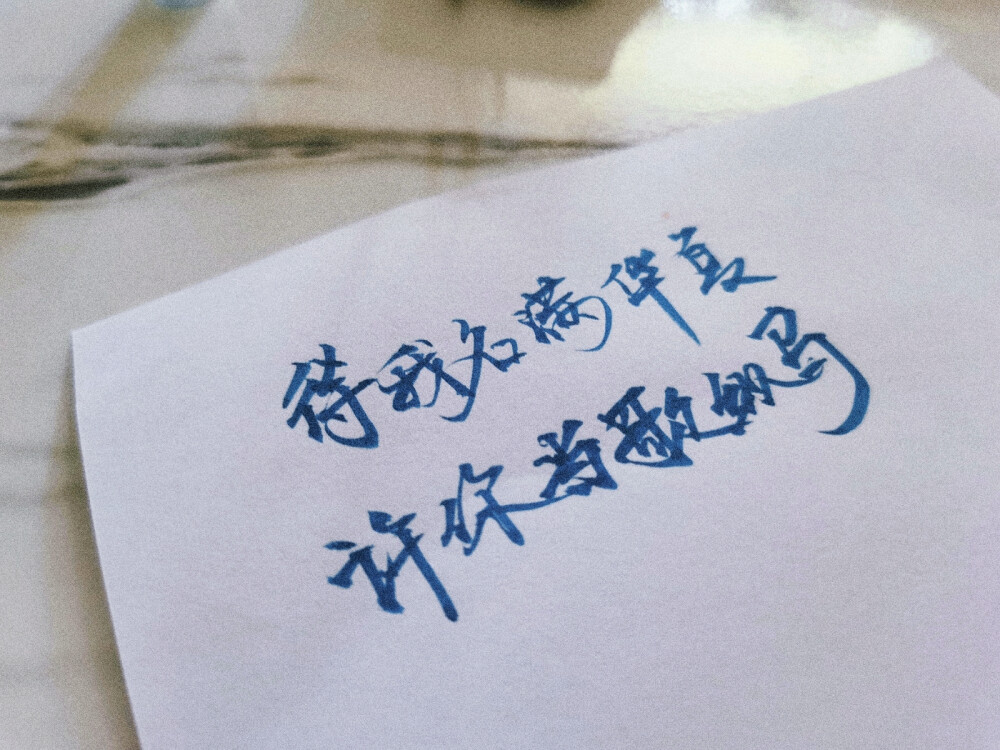 待我名满华夏
许你当歌纵马